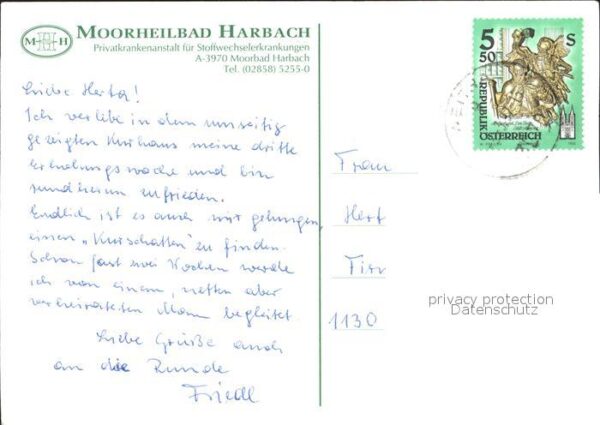 MOORHEILBAD HARBACH
M H
Privatkrankenanstalt für Stoffwechselerkrankungen
A-3970 Moorbad Harbach
Tel. (02858) 5255-0
Liebe Herta!
Ich verlebe in dem umseitig
gezeigten Kurhaus meine dritte
Erholungswoche und bin
rundherum zufrieden.
Endlich ist es auch mir gelungen,
einen „Kurschatten" zu finden.
Schon fast zwei Wochen werde
ich von einem, netten aber
verheirateten Mann begleitet.
Liebe Grüße auch
an die Runde
Friedl
5 50 S
REPUBLIK
ÖSTERREICH
Frau
Hert
1130
privacy protection
Datenschutz